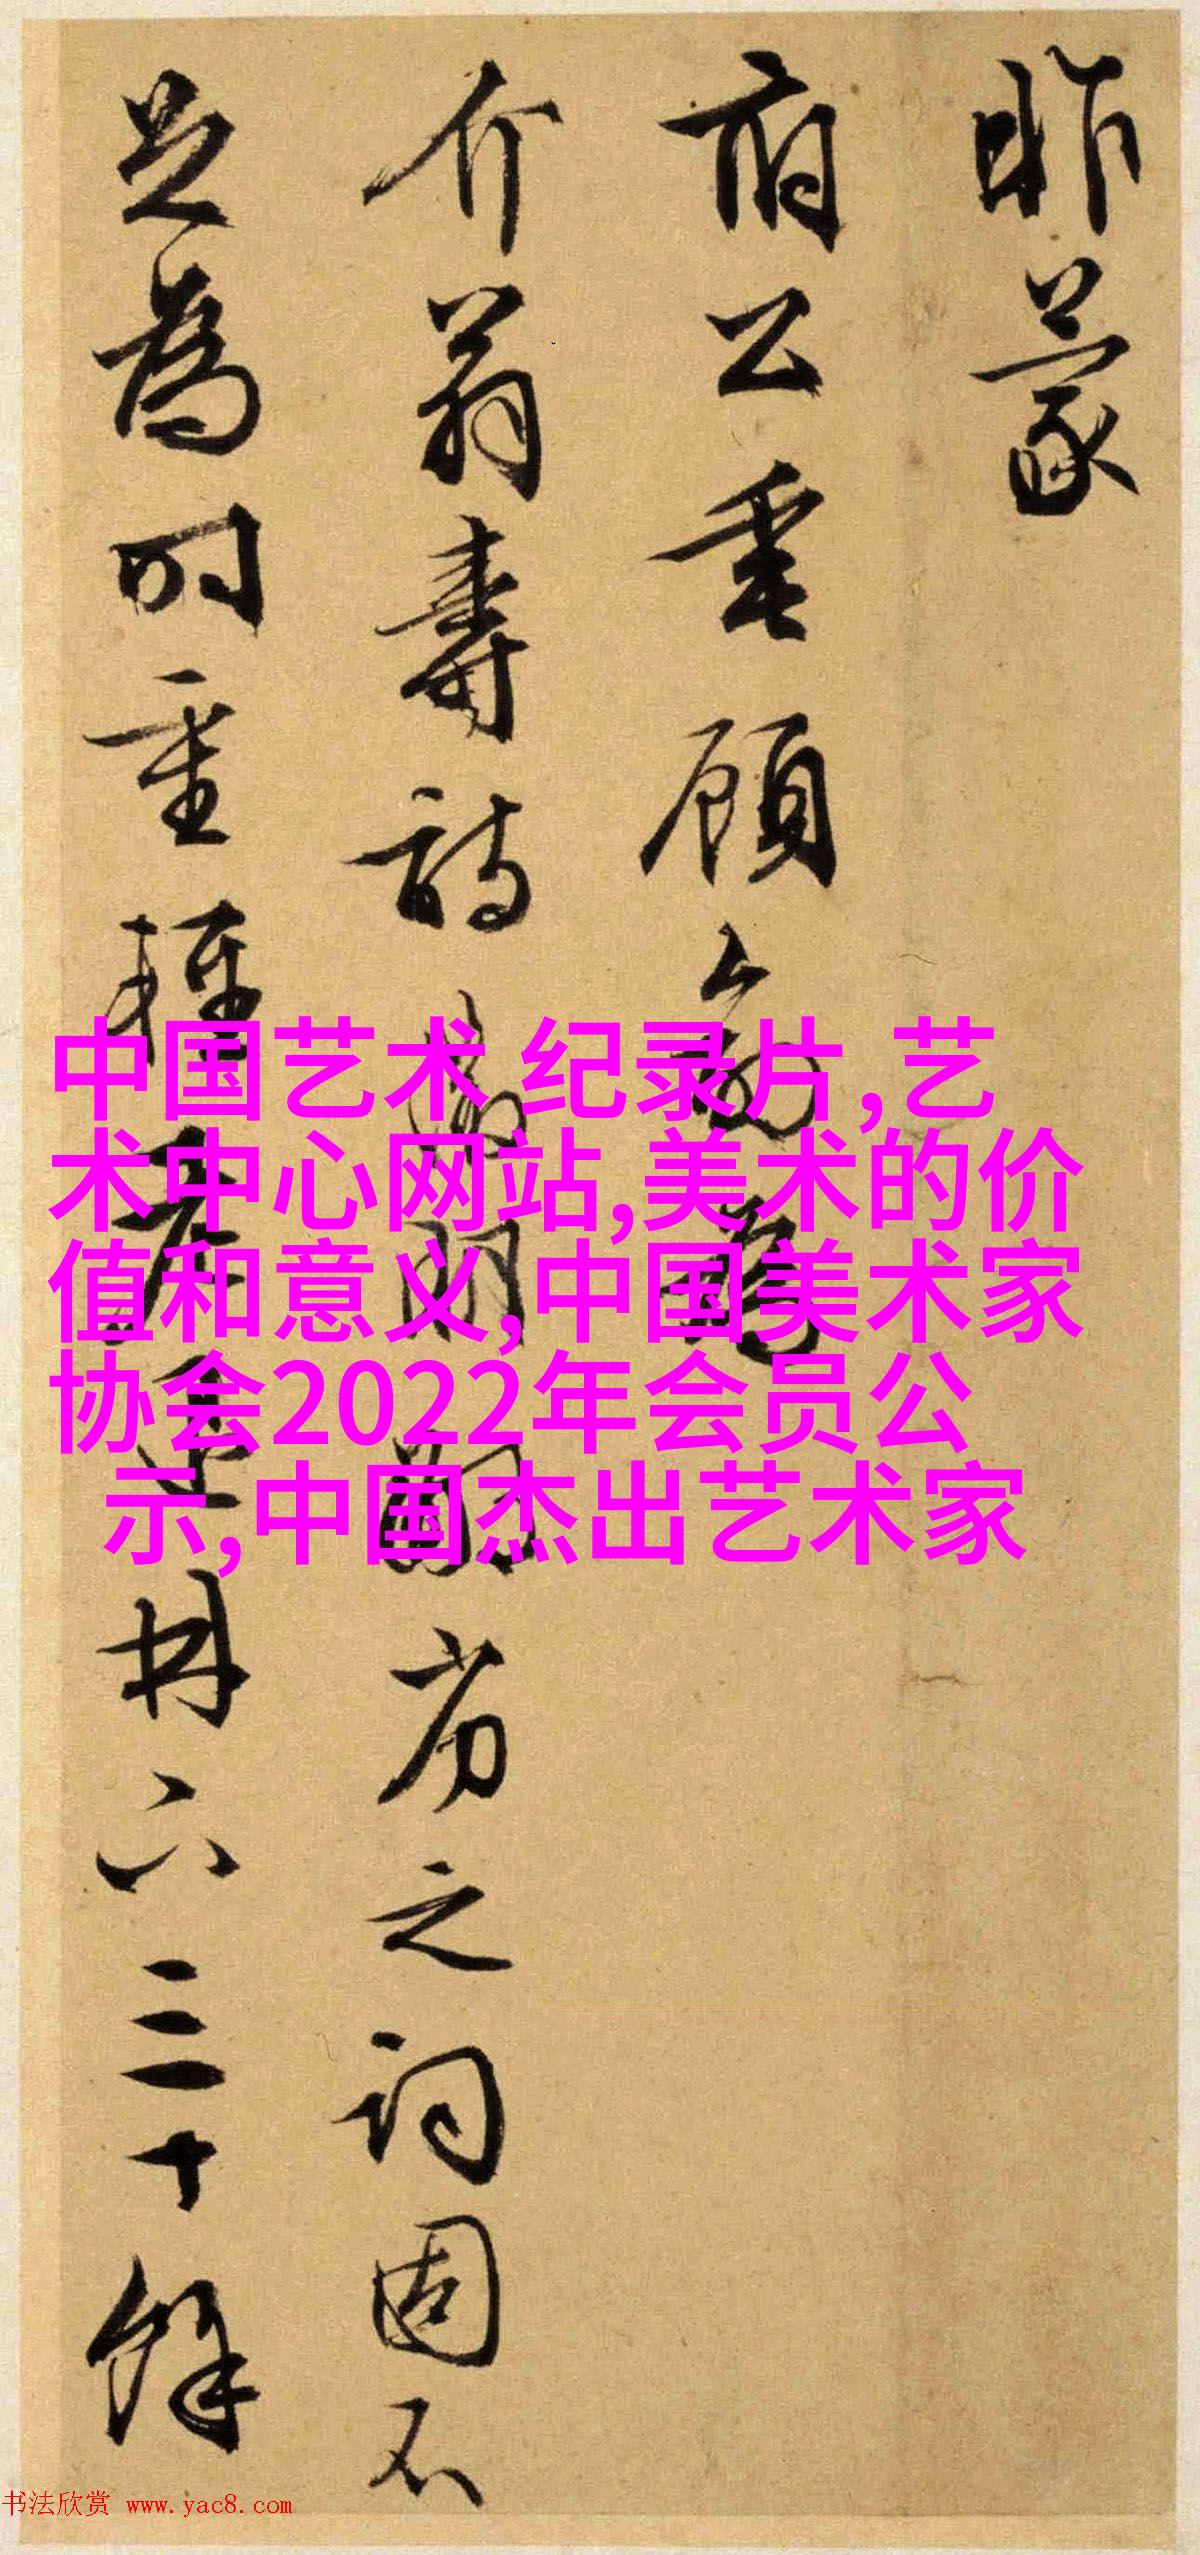 昨蒙
府公垂顧
介翁壽詩
明
劣之詞固不
足為時重
六三十餘
中国艺术 纪录片,艺
术中心网站,美术的价
值和意义,中国美术家
协会2022年会员公
示,中国杰出艺术家
书法欣赏 www.yac8.com